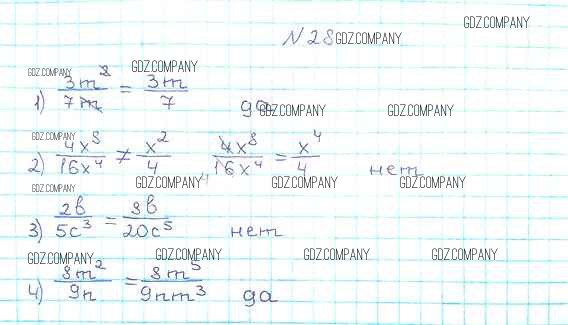 GDZ.COMPANY
N 28 GDZ.COMPANY
GDZ.COMPANY GDZ.COMPANY
1) 3m²/7m = 3m/7 да
GDZ.COMPANY GDZ.COMPANY
GDZ.COMPANY
2) 4x⁸/16x⁴ ≠ x²/4 4x⁸/16x⁴ = x⁴/4 нет
4
GDZ.COMPANY GDZ.COMPANY GDZ.COMPANY GDZ.COMPANY
3) 2b/5c³ = 8b/20c⁵ нет
GDZ.COMPANY GDZ.COMPANY GDZ.COMPANY GDZ.COMPANY
4) 8m²/9n = 8m⁵/9nm³ да